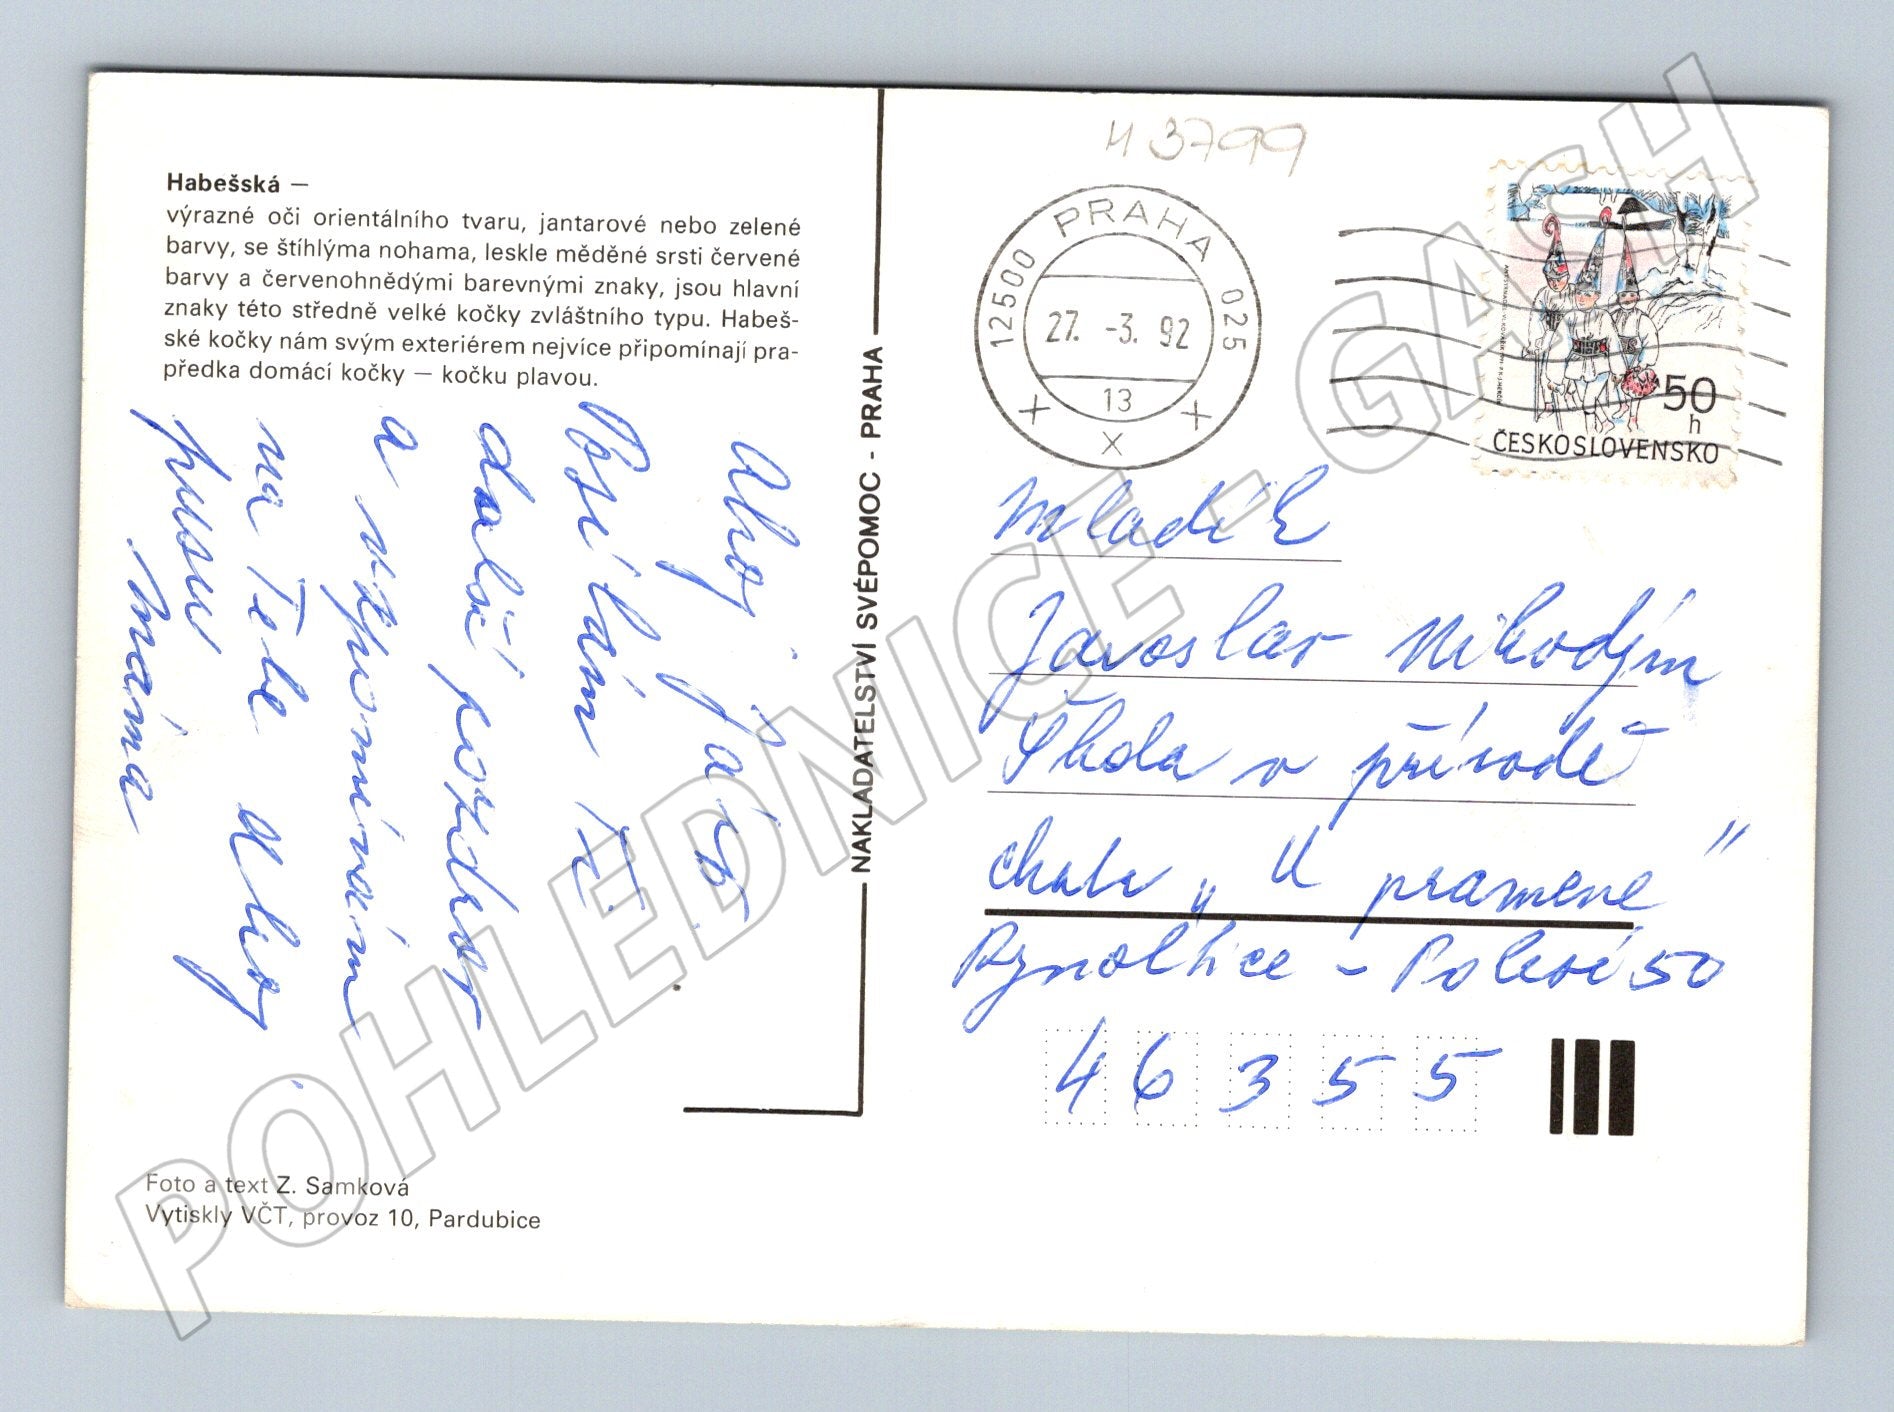 Habešská —
výrazné oči orientálního tvaru, jantarové nebo zelené
barvy, se štíhlýma nohama, leskle měděné srsti červené
barvy a červenohnědými barevnými znaky, jsou hlavní
znaky této středně velké kočky zvláštního typu. Habeš-
ské kočky nám svým exteriérem nejvíce připomínají pra-
předka domácí kočky — kočku plavou.
Ahoj Jaro
Posílám Ti
další pozdrav
a vzpomínám
na Tebe Ahoj
pusu
máma
Foto a text Z. Samková
Vytiskly VČT, provoz 10, Pardubice
NAKLADATELSTVÍ SVÉPOMOC - PRAHA
M 3799
12500 PRAHA 025
27. -3. 92
13
50
h
ČESKOSLOVENSKO
Mladík
Jaroslav Nikodým
Škola v přírodě
chata „U pramene"
Rynoltice - Polesí 50
46355
POHLEDNICE - GASH